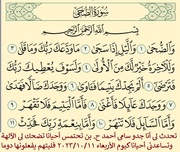 سُورَةُ الضُّحَىٰ
بِسْمِ اللَّهِ الرَّحْمَٰنِ الرَّحِيمِ
وَالضُّحَىٰ ١ وَاللَّيْلِ إِذَا سَجَىٰ ٢ مَا وَدَّعَكَ رَبُّكَ وَمَا قَلَىٰ ٣
وَلَلْآخِرَةُ خَيْرٌ لَكَ مِنَ الْأُولَىٰ ٤ وَلَسَوْفَ يُعْطِيكَ رَبُّكَ
فَتَرْضَىٰ ٥ أَلَمْ يَجِدْكَ يَتِيمًا فَآوَىٰ ٦ وَوَجَدَكَ ضَالًّا فَهَدَىٰ
٧ وَوَجَدَكَ عَائِلًا فَأَغْنَىٰ ٨ فَأَمَّا الْيَتِيمَ فَلَا تَقْهَرْ ٩
وَأَمَّا السَّائِلَ فَلَا تَنْهَرْ ١٠ وَأَمَّا بِنِعْمَةِ رَبِّكَ فَحَدِّثْ ١١
تحدث لى أنا جدو سامى أحمد ح. بن أحيانا تضحك لى الآلهة
وتساعدنى أحيانا كيوم الأربعاء ٢٠٢٣/١٠/١١ يفعلونها دوما